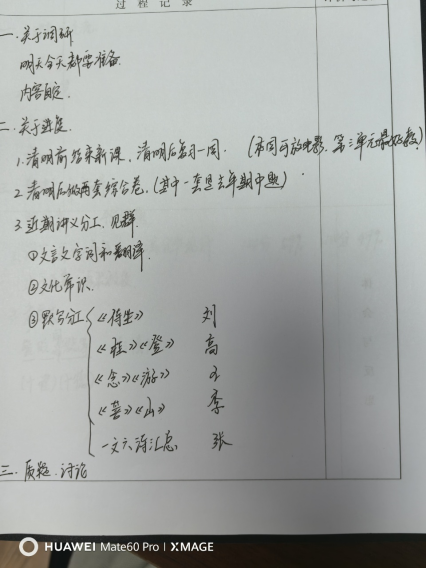 过程记录
一.关于调研
明天今天都要准备.
内容自定.
二.关于进度.
1.清明前结束新课,清明后复习一周. (本周可放电影,第三单元最好教)
2.清明后做两套综合卷.(其中一套是去年期中题)
3.近期讲义分工,见群.
①文言文字词和翻译.
②文化常识.
③默写分工
《将生》 刘
《 》《登》 高
《念》《游》 王
《 》《山》 李
一文六诗汇总 张
三.质疑.讨论
HUAWEI Mate60 Pro | XMAGE